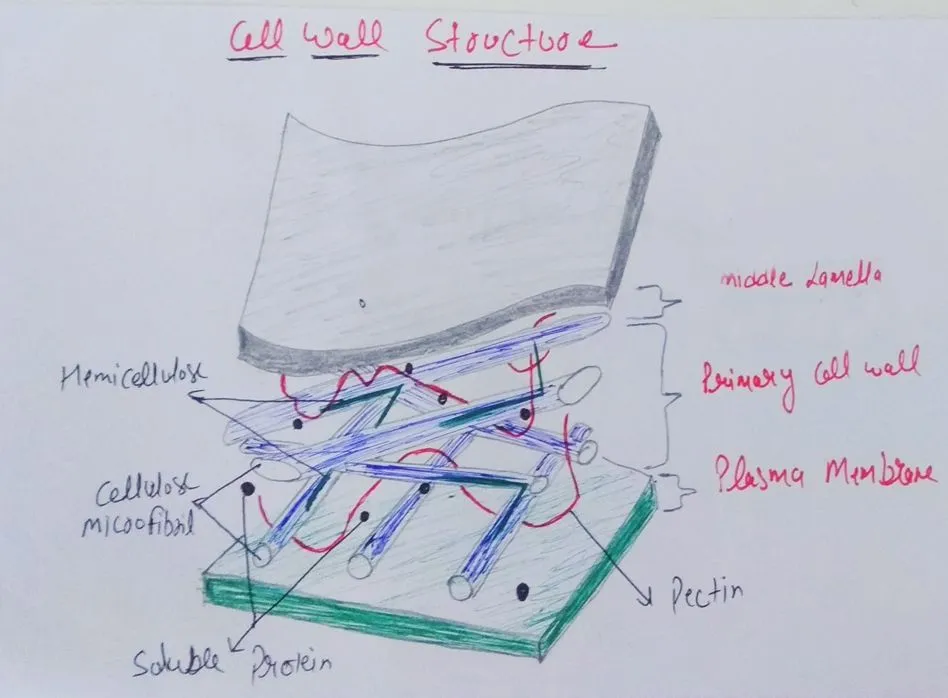 Cell Wall Structure
middle Lamella
Hemicellulose
Primary Cell wall
Cellulose
microfibril
Plasma Membrane
Pectin
Soluble Protein